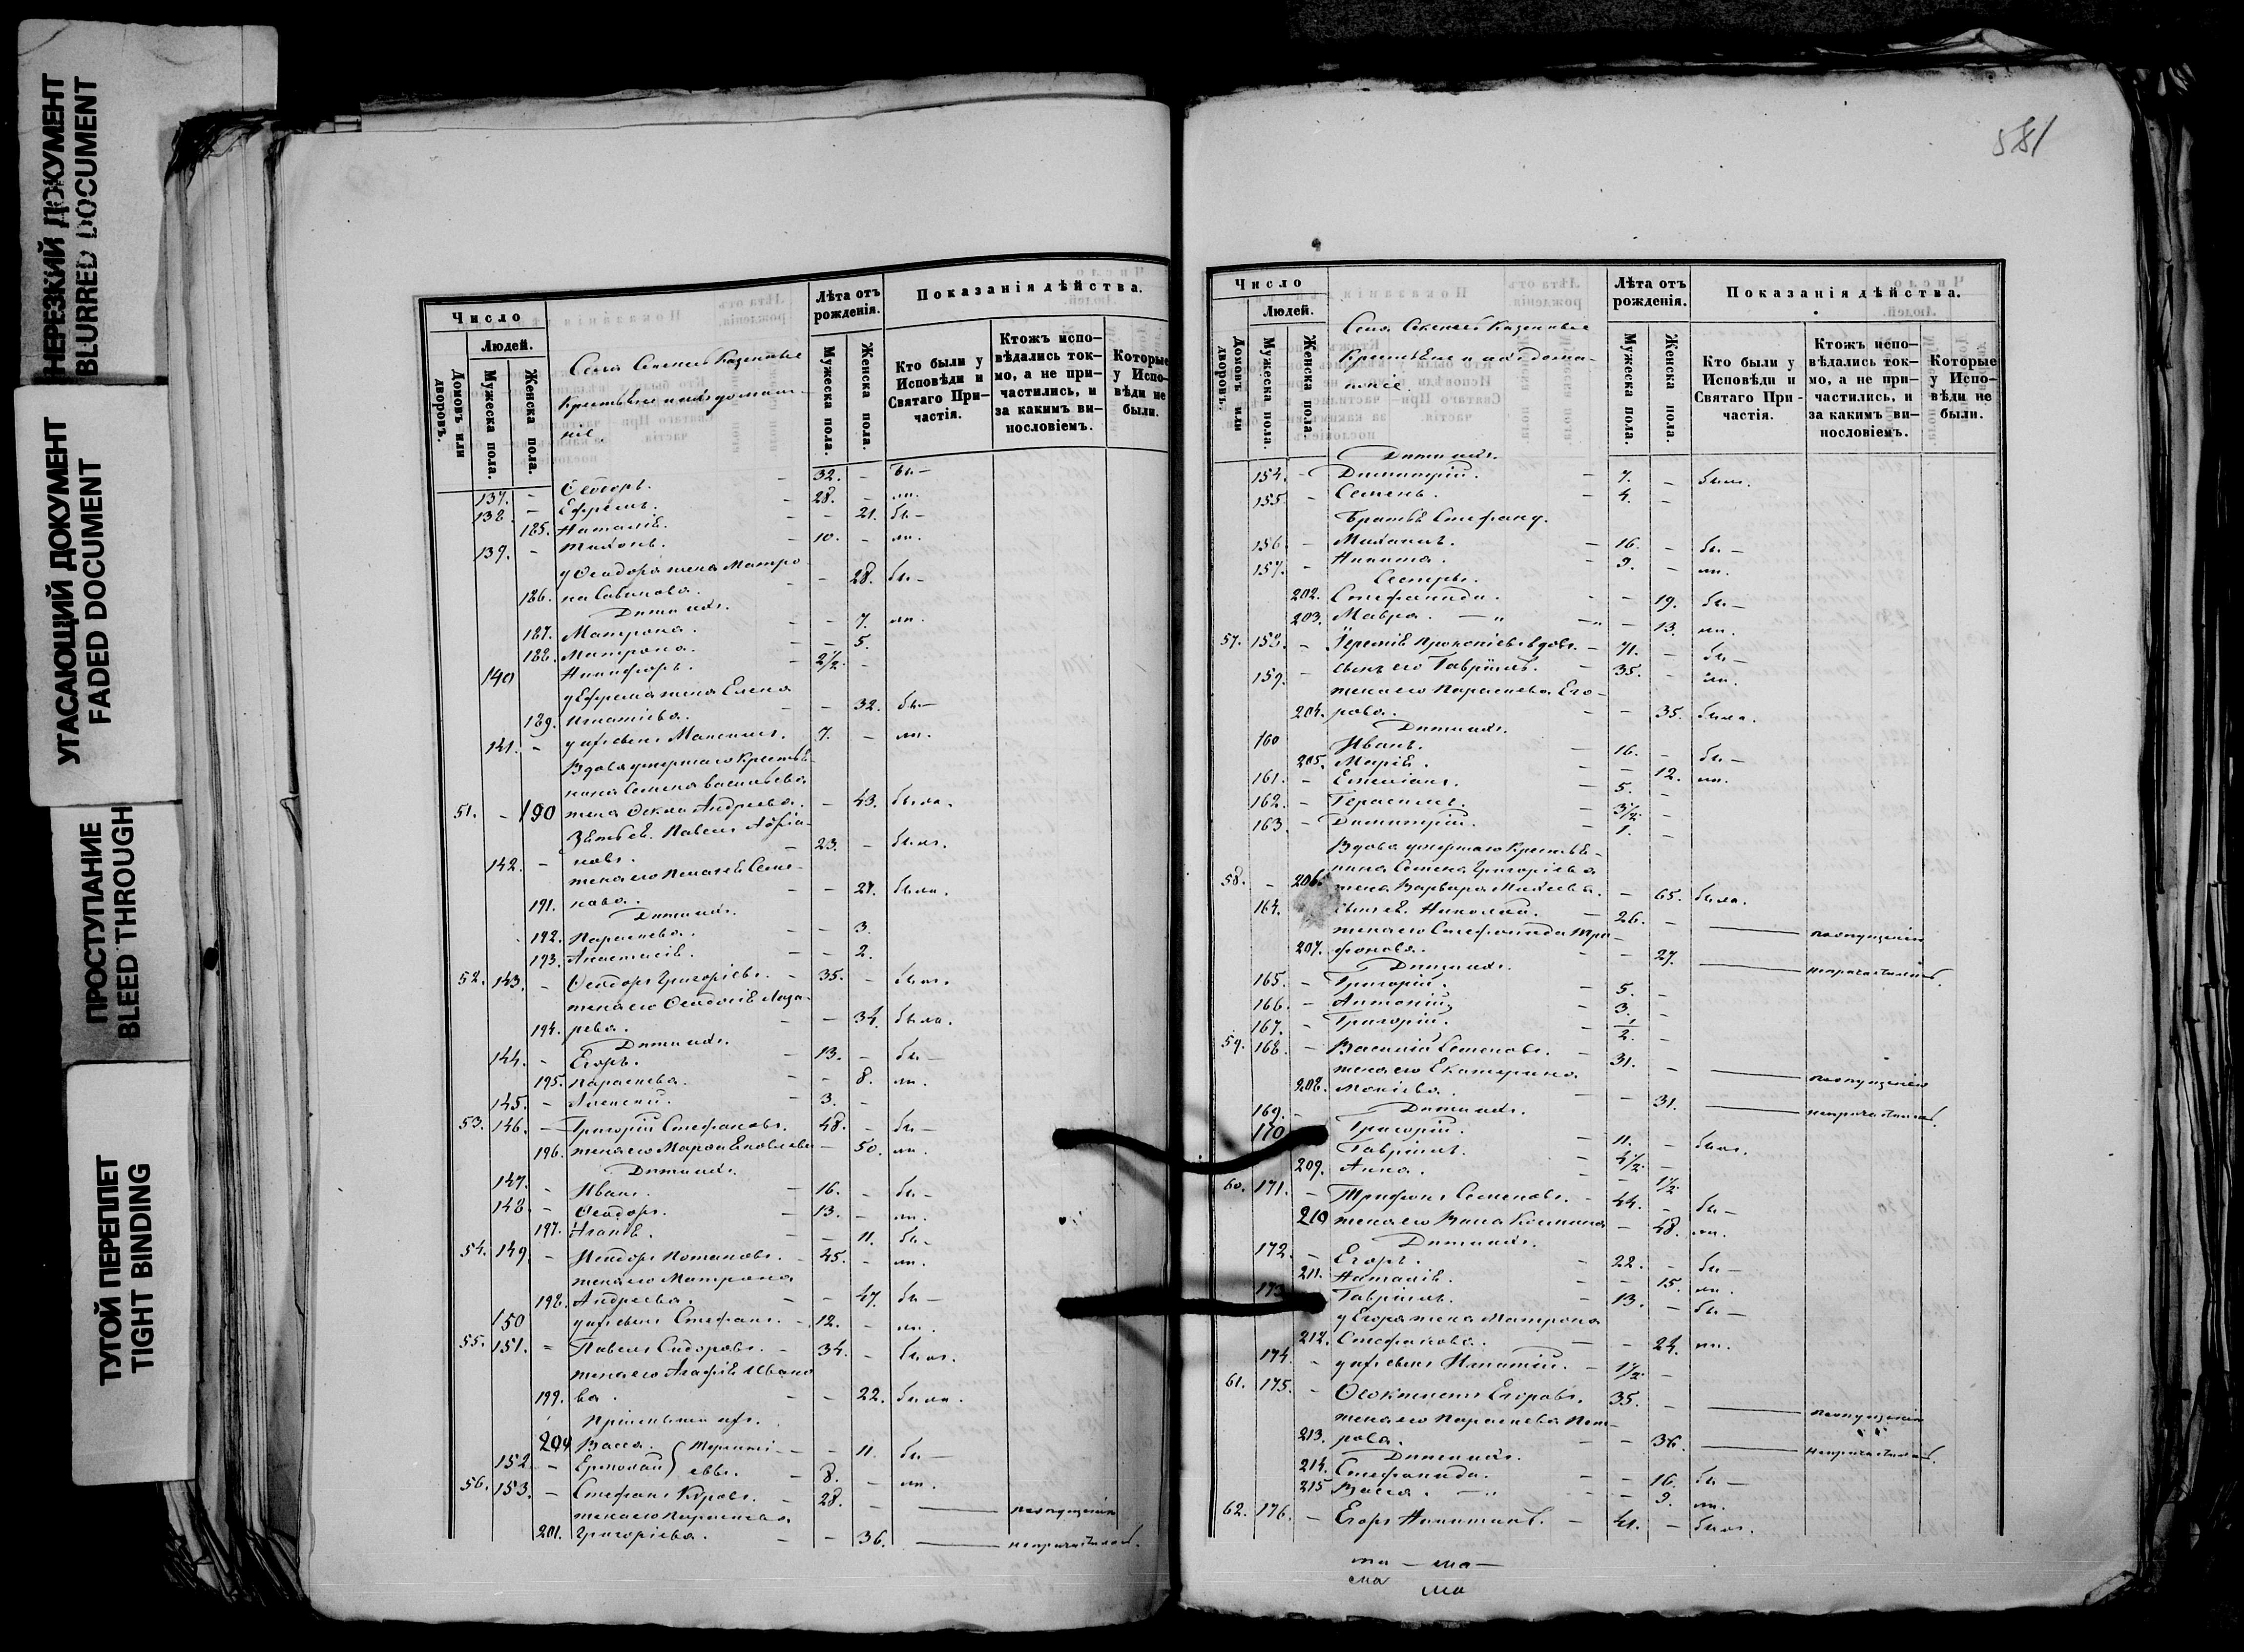 НЕРЕЗКИЙ ДОКУМЕНТ
BLURRED DOCUMENT
УГАСАЮЩИЙ ДОКУМЕНТ
FADED DOCUMENT
ПРОСТУПАНИЕ
BLEED THROUGH
ТУГОЙ ПЕРЕПЛЕТ
TIGHT BINDING
Число
Людей.
Домовъ или дворовъ.
Мужеска пола.
Женска пола.
Села Казенные
Крестьяне и их домаш-
ние.
Лѣта отъ рожденія.
Мужеска пола.
Женска пола.
Показанія дѣйства.
Кто были у Исповѣди и Святаго При-частія.
Ктожъ испо-вѣдались ток-мо, а не при-частились, и за какимъ ви-нословіемъ.
Которые у Испо-вѣди не были.
137. - Ѳеодоръ. - 32. - бы-
138. - Ефремъ. - 28. - ли.
185. Наталія. - - 21. бы-
139. - Тихонъ. - 10. - ли.
у Ѳеодора жена Матро
186. на Савинова. - - 28. бы-
Дети ихъ.
187. Матрона. - - 7. ли.
188. Матрона. - - 5.
140 Никифоръ. - 2½. -
у Ефрема жена Елена
189. Игнатіева. - - 32. бы-
141. - у ихъ сынъ Максимъ. 7. - ли.
Вдова умершаго Крестья-
нина Семена Васильева
51. - 190 жена Ѳекла Андреева. - 43. была.
Зять ея Павелъ
142. - новъ. - 23. - былъ.
жена его Пелагея Семе-
191. нова. - - 21. была.
Дети ихъ.
192. Параскева. - - 3.
193. Анастасія. - - 2.
52. 143. - Ѳеодоръ Григорьевъ. - 35. - былъ.
жена его Ѳеодосія Лаза-
194. рева. - - 34. была.
Дети ихъ.
144. - Егоръ. - 13. - бы-
195. Параскева. - - 8. ли.
145. - Алексей. - 3. -
53. 146. - Григорій Стефановъ. 48. - бы-
196. жена его Марѳа Яковлева - 50. ли.
Дети ихъ.
147. - Иванъ. - 16. - бы-
148. - Ѳеодоръ. - 13. - ли.
197. Агапія. - - 11. бы-
54. 149. - Исидоръ Потаповъ. - 45. - ли.
жена его Матрона
198. Андреева. - - 47. бы-
150 у ихъ сынъ Стефанъ. - 12. - ли.
55. 151. - Павелъ Сидоровъ. - 34. - былъ.
жена его Агафія Ивано
199. ва. - - 22. была.
Пріемыши ихъ.
200 Васса. } Терентi- - - 11. бы-
152. - Ермолай } евы. - 8. - ли.
56. 153. - Стефанъ Кировъ. - 28. - — по опущенію
жена его Параскева
201. Григоріева. - - 36. — непричастились.
581
Число
Людей.
Домовъ или дворовъ.
Мужеска пола.
Женска пола.
Села Казенные
Крестьяне и их домаш-
ніе.
Лѣта отъ рожденія.
Мужеска пола.
Женска пола.
Показанія дѣйства.
Кто были у Исповѣди и Святаго При-частія.
Ктожъ испо-вѣдались ток-мо, а не при-частились, и за какимъ ви-нословіемъ.
Которые у Испо-вѣди не были.
Дети ихъ.
154. - Димитрій. - 7. - былъ.
155. - Семенъ. - 4. -
Братья Стефану.
156. - Михаилъ. - 16. - бы-
157. - Никита. - 9. - ли.
Сестры.
202. Стефанида. - - 19. бы-
203. Мавра. - - 13. ли.
57. 158. - Іеремія Прокопіевъ вдовъ. - 71. - бы-
159. - сынъ его Гавріилъ. - 35. - ли.
жена его Параскева Его-
204. рова. - - 35. была.
Дети ихъ.
160 Иванъ. - 16. - бы-
205. Марія. - - 12. ли.
161. - Емеліанъ. - 5. -
162. - Герасимъ. - 3½. -
163. - Димитрій. - 1. -
Вдова умершаго Крестья-
нина Семена Григоріева
58. - 206. жена Варвара Михеева. - 65. была.
164. сынъ ея Николай. - 26. - — по опущенію
жена его Стефанида Три-
207. фонова. - - 27. — непричастились.
Дети ихъ.
165. - Григорій. - 5. -
166. - Антоній. - 3. -
167. - Григорій. - ½. -
59. 168. - Василій Семеновъ. - 31. - — по опущенію
жена его Екатерина
208. Мокіева. - - 31. — непричастились.
Дети ихъ.
169. - Григорій. - 11. - былъ.
170 Гавріилъ. - 4½. -
209. Анна. - - 1½.
60. 171. - Трифонъ Семеновъ. - 44. - бы-
210 жена его Васса Космина - 48. ли.
Дети ихъ.
172. - Егоръ. - 22. - бы-
211. Наталія. - - 15. ли.
173 Гавріилъ. - 13. - бы-
у Егора жена Матрона
212. Стефанова. - - 24. ли.
174. - у ихъ сынъ Игнатій. - 1½. -
61. 175. - Ѳеоктистъ Егоровъ. 35. - — по опущенію
жена его Параскева Пет-
213. рова. - - 36. — непричастились.
Дети ихъ.
214. Стефанида. - - 16. бы-
215 Васса. - - 9. ли.
62. 176. - Егоръ Никитинъ. - 41. - былъ.